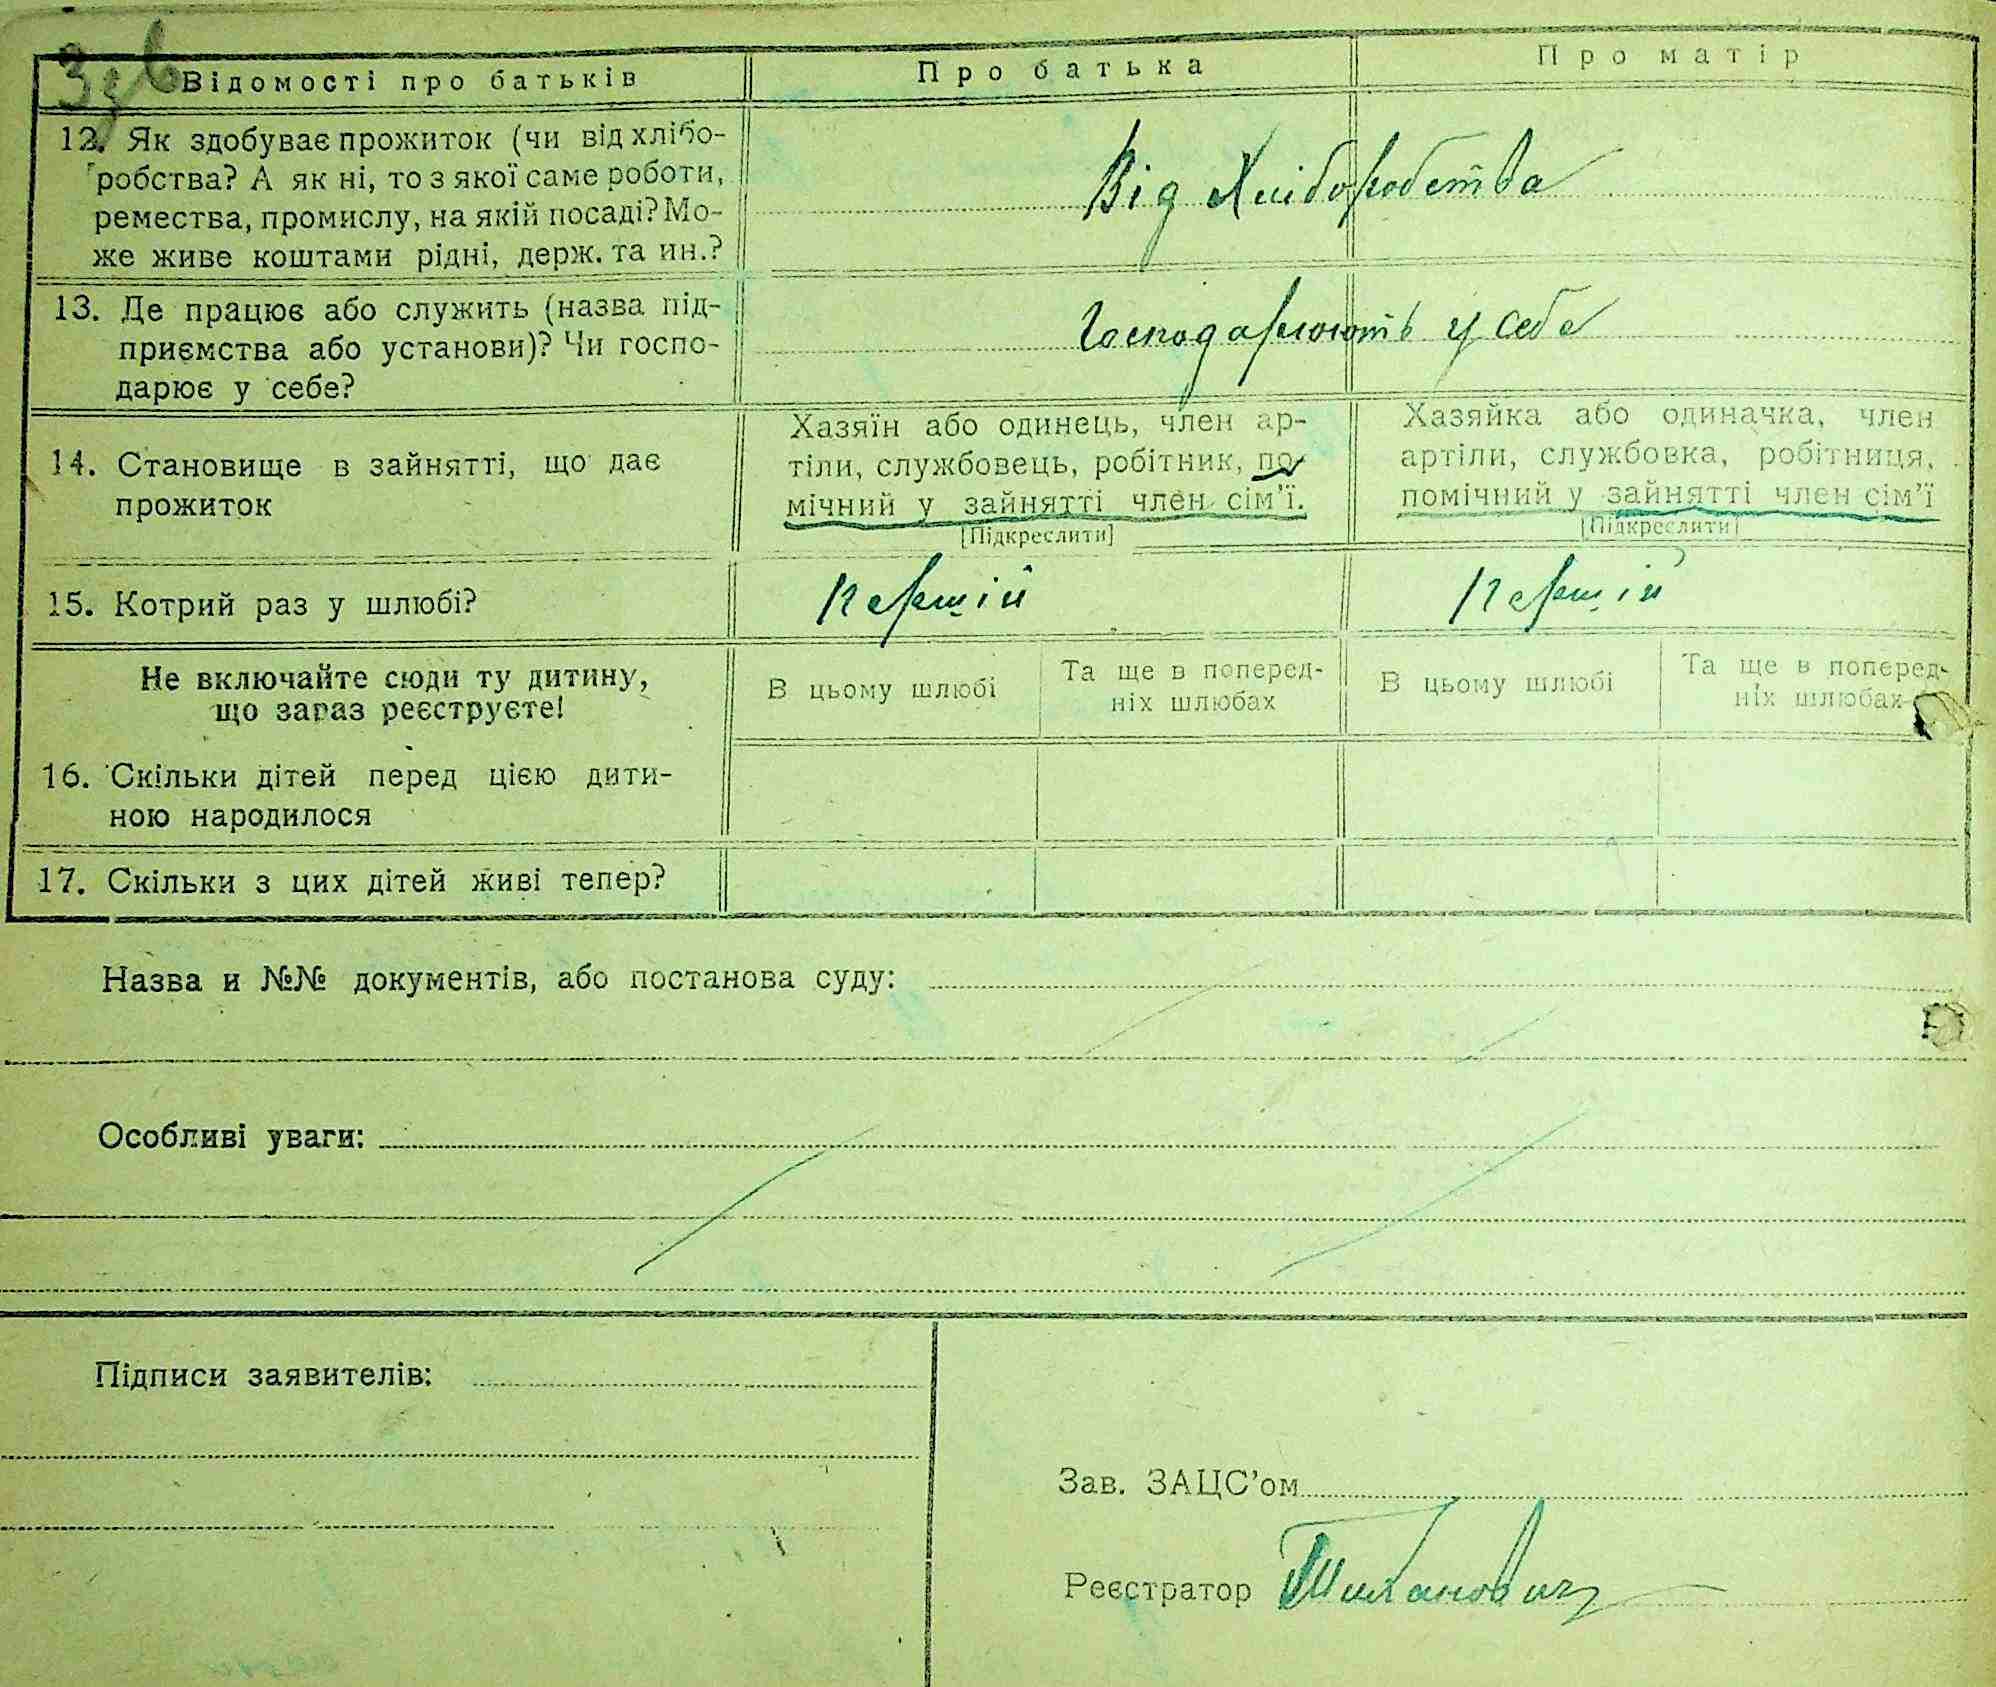 Відомості про батьків
Про батька
Про матір
12. Як здобуває прожиток (чи від хлібо-
робства? А як ні, то з якої саме роботи,
ремества, промислу, на якій посаді? Мо-
же живе коштами рідні, держ. та ин.?
Від Хліборобства
13. Де працює або служить (назва під-
приємства або установи)? Чи госпо-
дарює у себе?
Господарюють у себе
14. Становище в зайнятті, що дає
прожиток
Хазяїн або одинець, член ар-
тіли, службовець, робітник, по
мічний у зайнятті член сім'ї.
[Підкреслити]
Хазяйка або одиначка, член
артіли, службовка, робітниця,
помічний у зайнятті член сім'ї
[Підкреслити]
15. Котрий раз у шлюбі?
першій
першій
Не включайте сюди ту дитину,
що зараз реєструєте!
В цьому шлюбі
Та ще в поперед-
ніх шлюбах
В цьому шлюбі
Та ще в поперед-
ніх шлюбах
16. Скільки дітей перед цією дити-
ною народилося
17. Скільки з цих дітей живі тепер?
Назва и №№ документів, або постанова суду:
Особливі уваги:
Підписи заявителів:
Зав. ЗАЦС'ом
Реєстратор